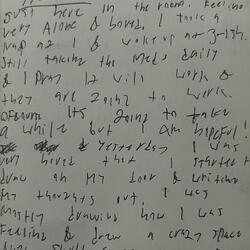 Just here in the room. Feeling
very Alone & bored. I took a
nap at 1 & woke up at 3-ish.
Still taking the Meds daily
& I Pray It will work &
they are going to work.
It's going to take
a while but I am hopeful!
Yesterday I was
very bored that I started to
draw on My door & written
My thoughts out. I was
Mostly drawing how I was
Feeling & drew a crazy space